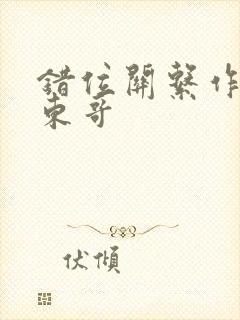 錯位關繫作
東哥
伏傾